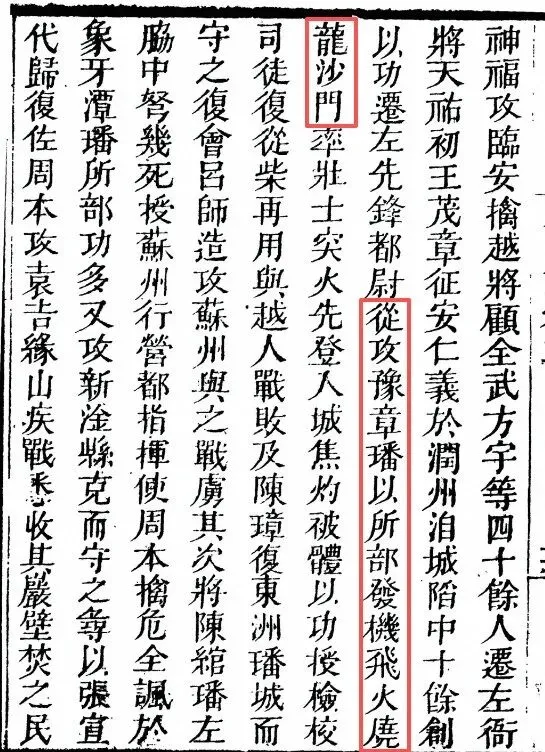 神福攻臨安擒越將顧全武方宇等四十餘人遷左衙
將天祐初王茂章征安仁義於潤州洎城陷中十餘創
以功遷左先鋒都尉從攻豫章璠以所部發機飛火燒
龍沙門率壯士突火先登入城焦灼被體以功授檢校
司徒復從柴再用與越人戰敗及陳璋復東洲璠城而
守之復會呂師造攻蘇州與之戰虜其次將陳綰璠左
脇中弩幾死授蘇州行營都指揮使周本擒危全諷於
象牙潭璠所部功多又攻新淦縣克而守之尋以張宣
代歸復佐周本攻袁吉緣山疾戰悉收其巖壁焚之民